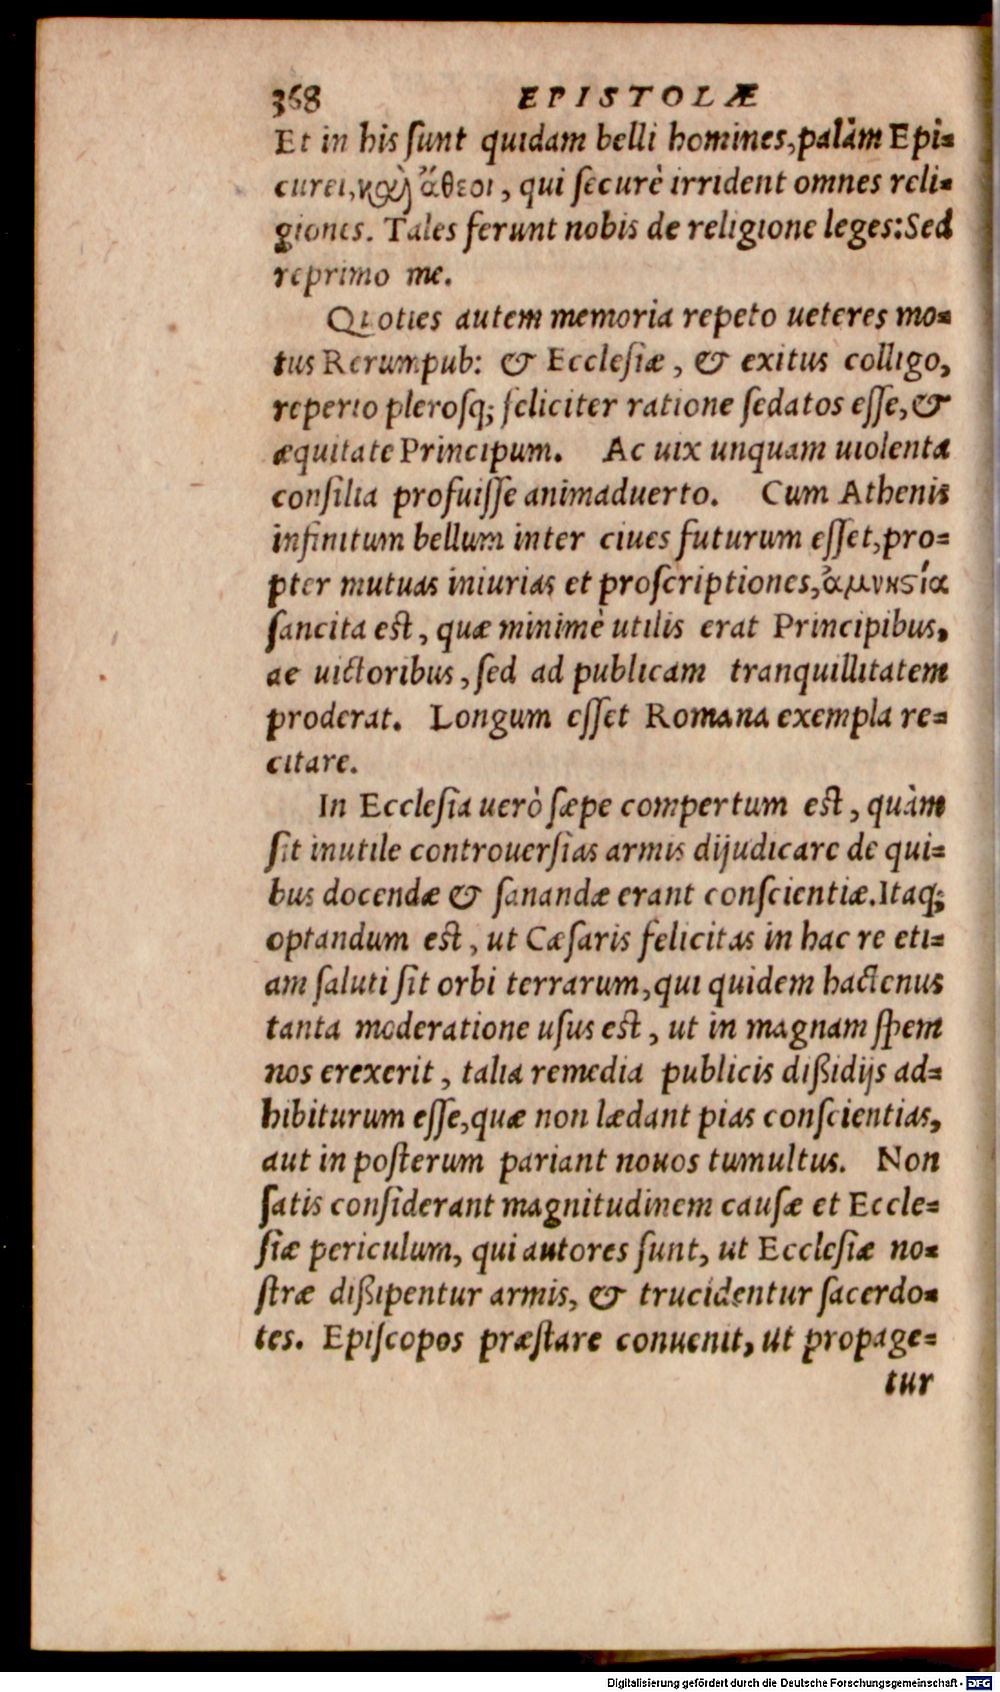 368 EPISTOLÆ
Et in his ſunt quidam belli homines, palàm Epi=
curei, καὶ ἄθεοι, qui ſecurè irrident omnes reli=
giones. Tales ferunt nobis de religione leges: Sed
reprimo me.
Quoties autem memoria repeto ueteres mo=
tus Rerumpub: & Eccleſiæ, & exitus colligo,
reperio pleroſq; feliciter ratione ſedatos eſſe, &
æquitate Principum. Ac uix unquam uiolenta
conſilia profuiſſe animaduerto. Cum Athenis
infinitum bellum inter ciues futurum eſſet, pro=
pter mutuas iniurias et proſcriptiones, ἀμνηςία
ſancita eſt, quæ minimè utilis erat Principibus,
ae uictoribus, ſed ad publicam tranquillitatem
proderat. Longum eſſet Romana exempla re=
citare.
In Eccleſia uerò ſæpe compertum eſt, quàm
ſit inutile controuerſias armis dijudicare de qui=
bus docendæ & ſanandæ erant conſcientiæ. Itaq;
optandum eſt, ut Cæſaris felicitas in hac re eti=
am ſaluti ſit orbi terrarum, qui quidem hactenus
tanta moderatione uſus eſt, ut in magnam ſpem
nos erexerit, talia remedia publicis dißidijs ad=
hibiturum eſſe, quæ non lædant pias conſcientias,
aut in poſterum pariant nouos tumultus. Non
ſatis conſiderant magnitudinem cauſæ et Eccle=
ſiæ periculum, qui autores ſunt, ut Eccleſiæ no=
ſtræ dißipentur armis, & trucidentur ſacerdo=
tes. Epiſcopos præſtare conuenit, ut propage=
tur
Digitalisierung gefördert durch die Deutsche Forschungsgemeinschaft - DFG